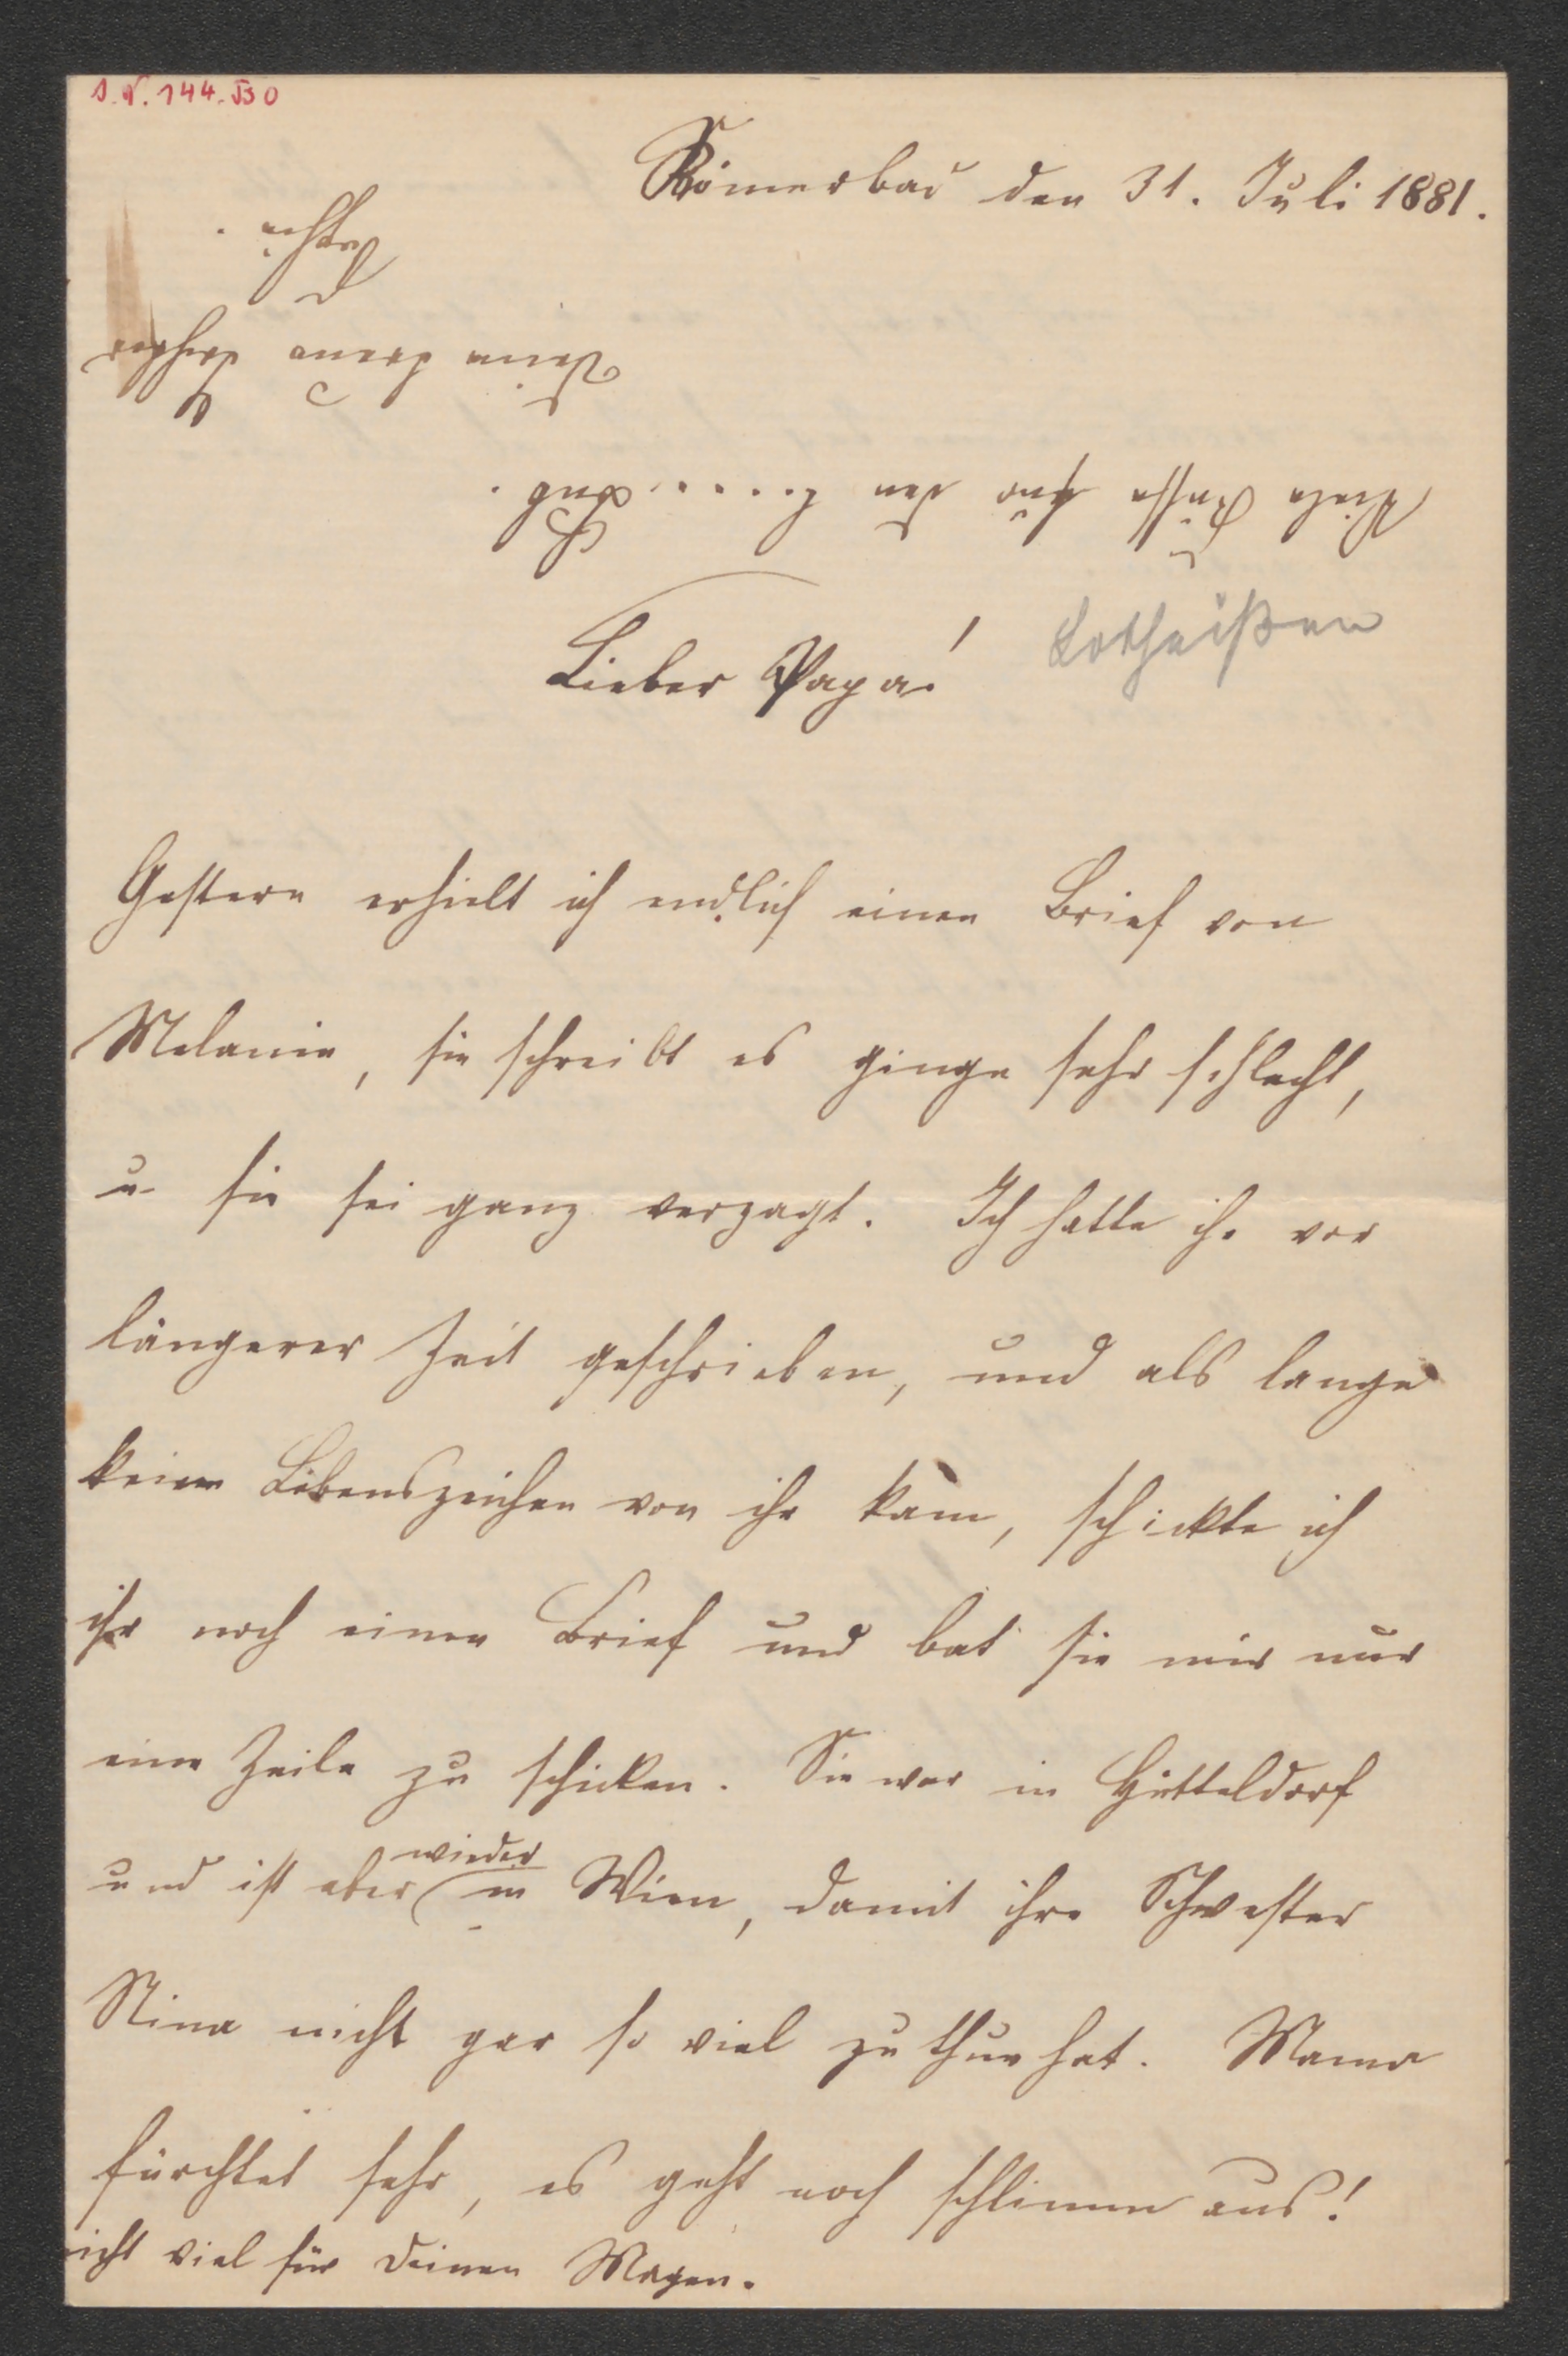 144.530
Römerbad den 31. Juli 1881.
Deine treue Tochter
Viele Küsse für den
Lieber Papa!
Lotheißen
Gestern erhielt ich endlich einen Brief von
Melanie, sie schreibt es ginge sehr schlecht,
u sie sei ganz verzagt. Ich hatte ihr vor
längerer Zeit geschrieben, und als lange
kein Lebenszeichen von ihr kam, schickte ich
ihr noch einen Brief und bat sie mir nur
eine Zeile zu schicken. Sie war in Hütteldorf
wieder
und ist aber in Wien, damit ihre Schwester
Nina nicht gar so viel zu thun hat. Mama
fürchtet sehr, es geht noch schlimm aus!
nicht viel für Deinen Magen.